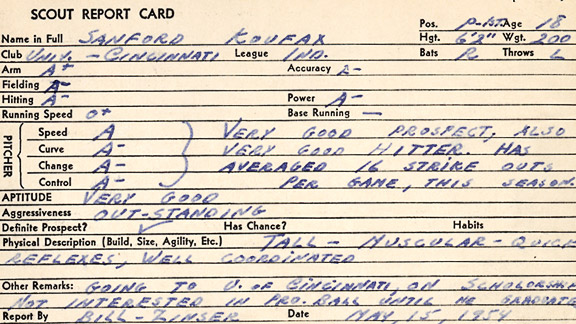 SCOUT REPORT CARD
Pos. P-1st Age 18
Name in Full SANFORD KOUFAX Hgt. 6'2" Wgt. 200
Club UNIV. - CINCINNATI League IND. Bats R Throws L
Arm A+ Accuracy A-
Fielding A-
Hitting A- Power A-
Running Speed O+ Base Running —
PITCHER
Speed A VERY GOOD PROSPECT, ALSO
Curve A- VERY GOOD HITTER. HAS
Change A- AVERAGED 16 STRIKE OUTS
Control A- PER GAME, THIS SEASON
APTITUDE VERY GOOD
Aggressiveness OUT-STANDING
Definite Prospect? ✓ Has Chance? Habits
Physical Description (Build, Size, Agility, Etc.) TALL - MUSCULAR - QUICK
REFLEXES, WELL COORDINATED
Other Remarks: GOING TO U. OF CINCINNATI, ON SCHOLARSHIP
NOT INTERESTED IN PRO. BALL UNTIL HE GRADUATE
Report By BILL - ZINSER Date MAY, 15, 1954